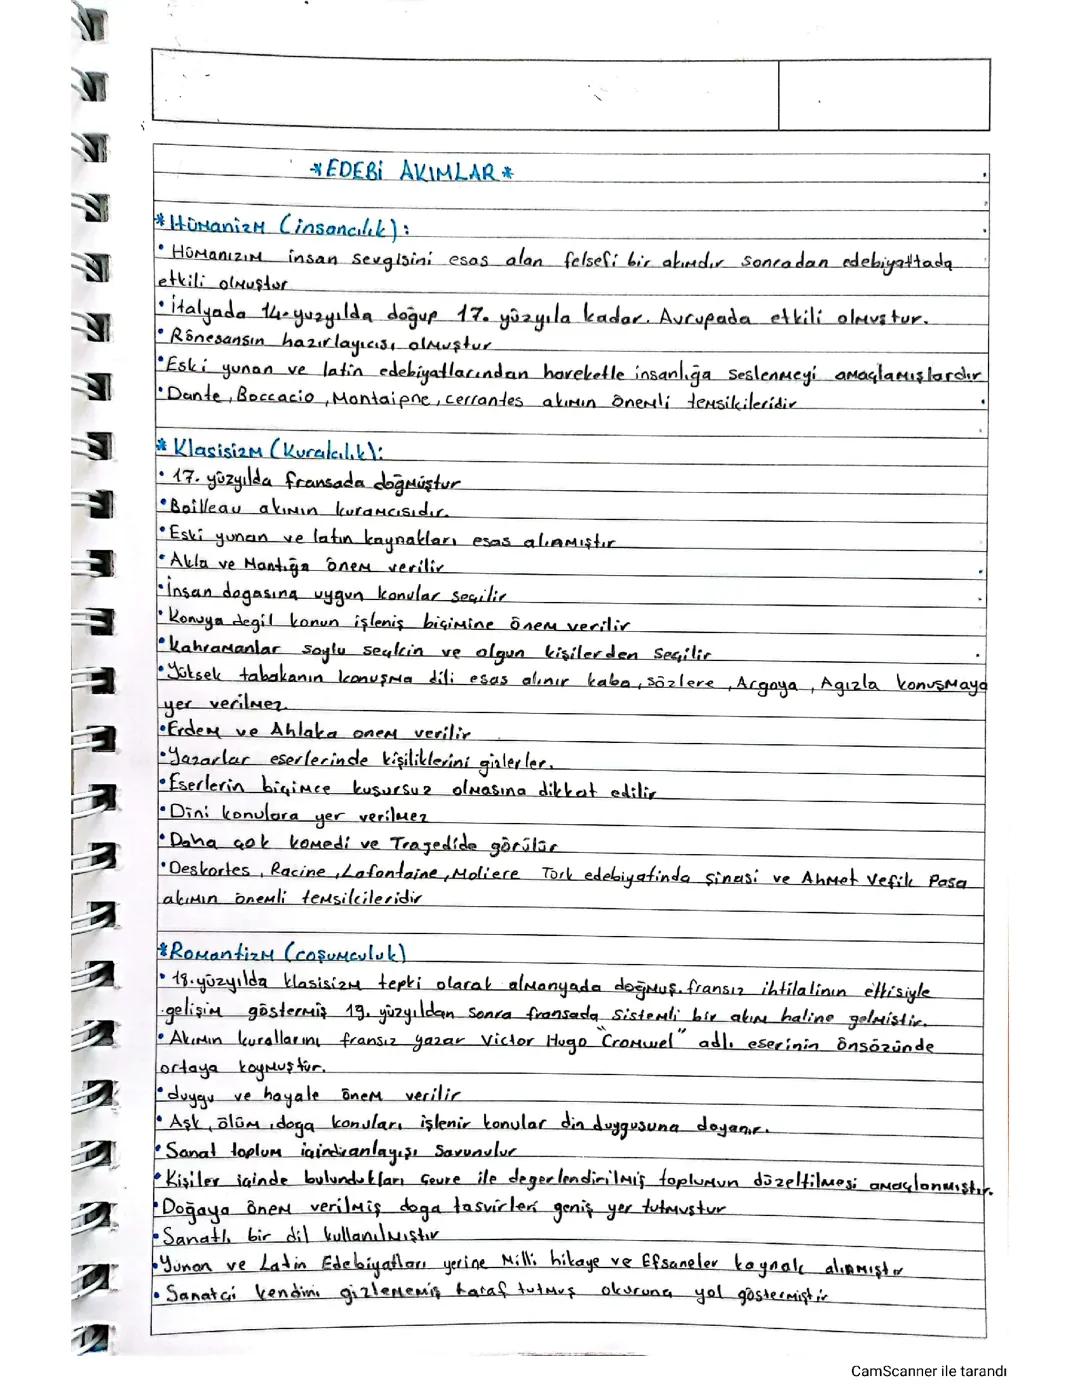 *EDEBİ AKIMLAR*
*Hümanizm (insancılık):
• Hümanızım insan sevgisini esas alan felsefi bir akımdır sonradan edebiyattada
etkili olmuştur
• İtalyada 14. yuzyılda doğup 17. yüzyıla kadar. Avrupada etkili olmuştur.
• Rönesansın hazırlayıcısı olmuştur
• Eski yunan ve latin edebiyatlarından hareketle insanlığa seslenmeyi amaçlamışlardır
• Dante, Boccacio, Montaipne, cerrantes akımın önemli temsikileridir
* Klasisizm (Kuralcılık):
• 17. yüzyılda fransada doğmüştur
• Boilleau akımın kuramcısıdır.
• Eski yunan ve latın kaynakları esas alınmıştır
• Akla ve Mantığa önem verilir
• İnsan dogasına uygun konular seçilir
• Konuya degil konun işleniş biçimine önem verilir
• kahramanlar soylu seçkin ve olgun kişilerden seçilir
• Yüksek tabakanın konuşma dili esas alınır kaba, sözlere, Argoya, Agızla konuşmaya
yer verilmez
• Erdem ve Ahlaka onem verilir
• Yazarlar eserlerinde kişiliklerini gizlerler.
• Eserlerin biçimce kusursuz olmasına dikkat edilir
• Dini konulara yer verilmez
• Daha çok komedi ve Trajedide görülür
• Deskartes, Racine, Lafontaine, Moliere Türk edebiyatında şinasi ve Ahmet Vefik Pasa
akımın önemli temsilcileridir
*Romantizm (coşumculuk)
• 18. yüzyılda klasisizm tepki olarak almanyada doğmuş. fransız ihtilalinin etkisiyle
gelişim göstermiş 19. yüzyıldan sonra fransada sistemli bir akım haline gelmistir.
• Akımın kurallarını fransız yazar Victor Hugo "Cromwel" adlı eserinin önsözünde
ortaya koymuştur.
• duygu ve hayale önem verilir
• Aşk, ölüm, doga konuları işlenir konular din duygusuna dayanır.
• Sanat toplum içindir anlayışı Savunulur
• Kişiler içinde bulundukları Çevre ile degerlendirilmiş toplumun düzeltilmesi amaçlanmıştır.
• Doğaya önem verilmiş doga tasvirleri geniş yer tutmuştur
• Sanatlı bir dil kullanılmıştır
• Yunan ve Latin Edebiyatları yerine Milli hikaye ve Efsaneler kaynak alınmıştır
• Sanatçi kendini gizlememiş taraf tutmuş okuruna yol göstermiştir
CamScanner ile tarandı